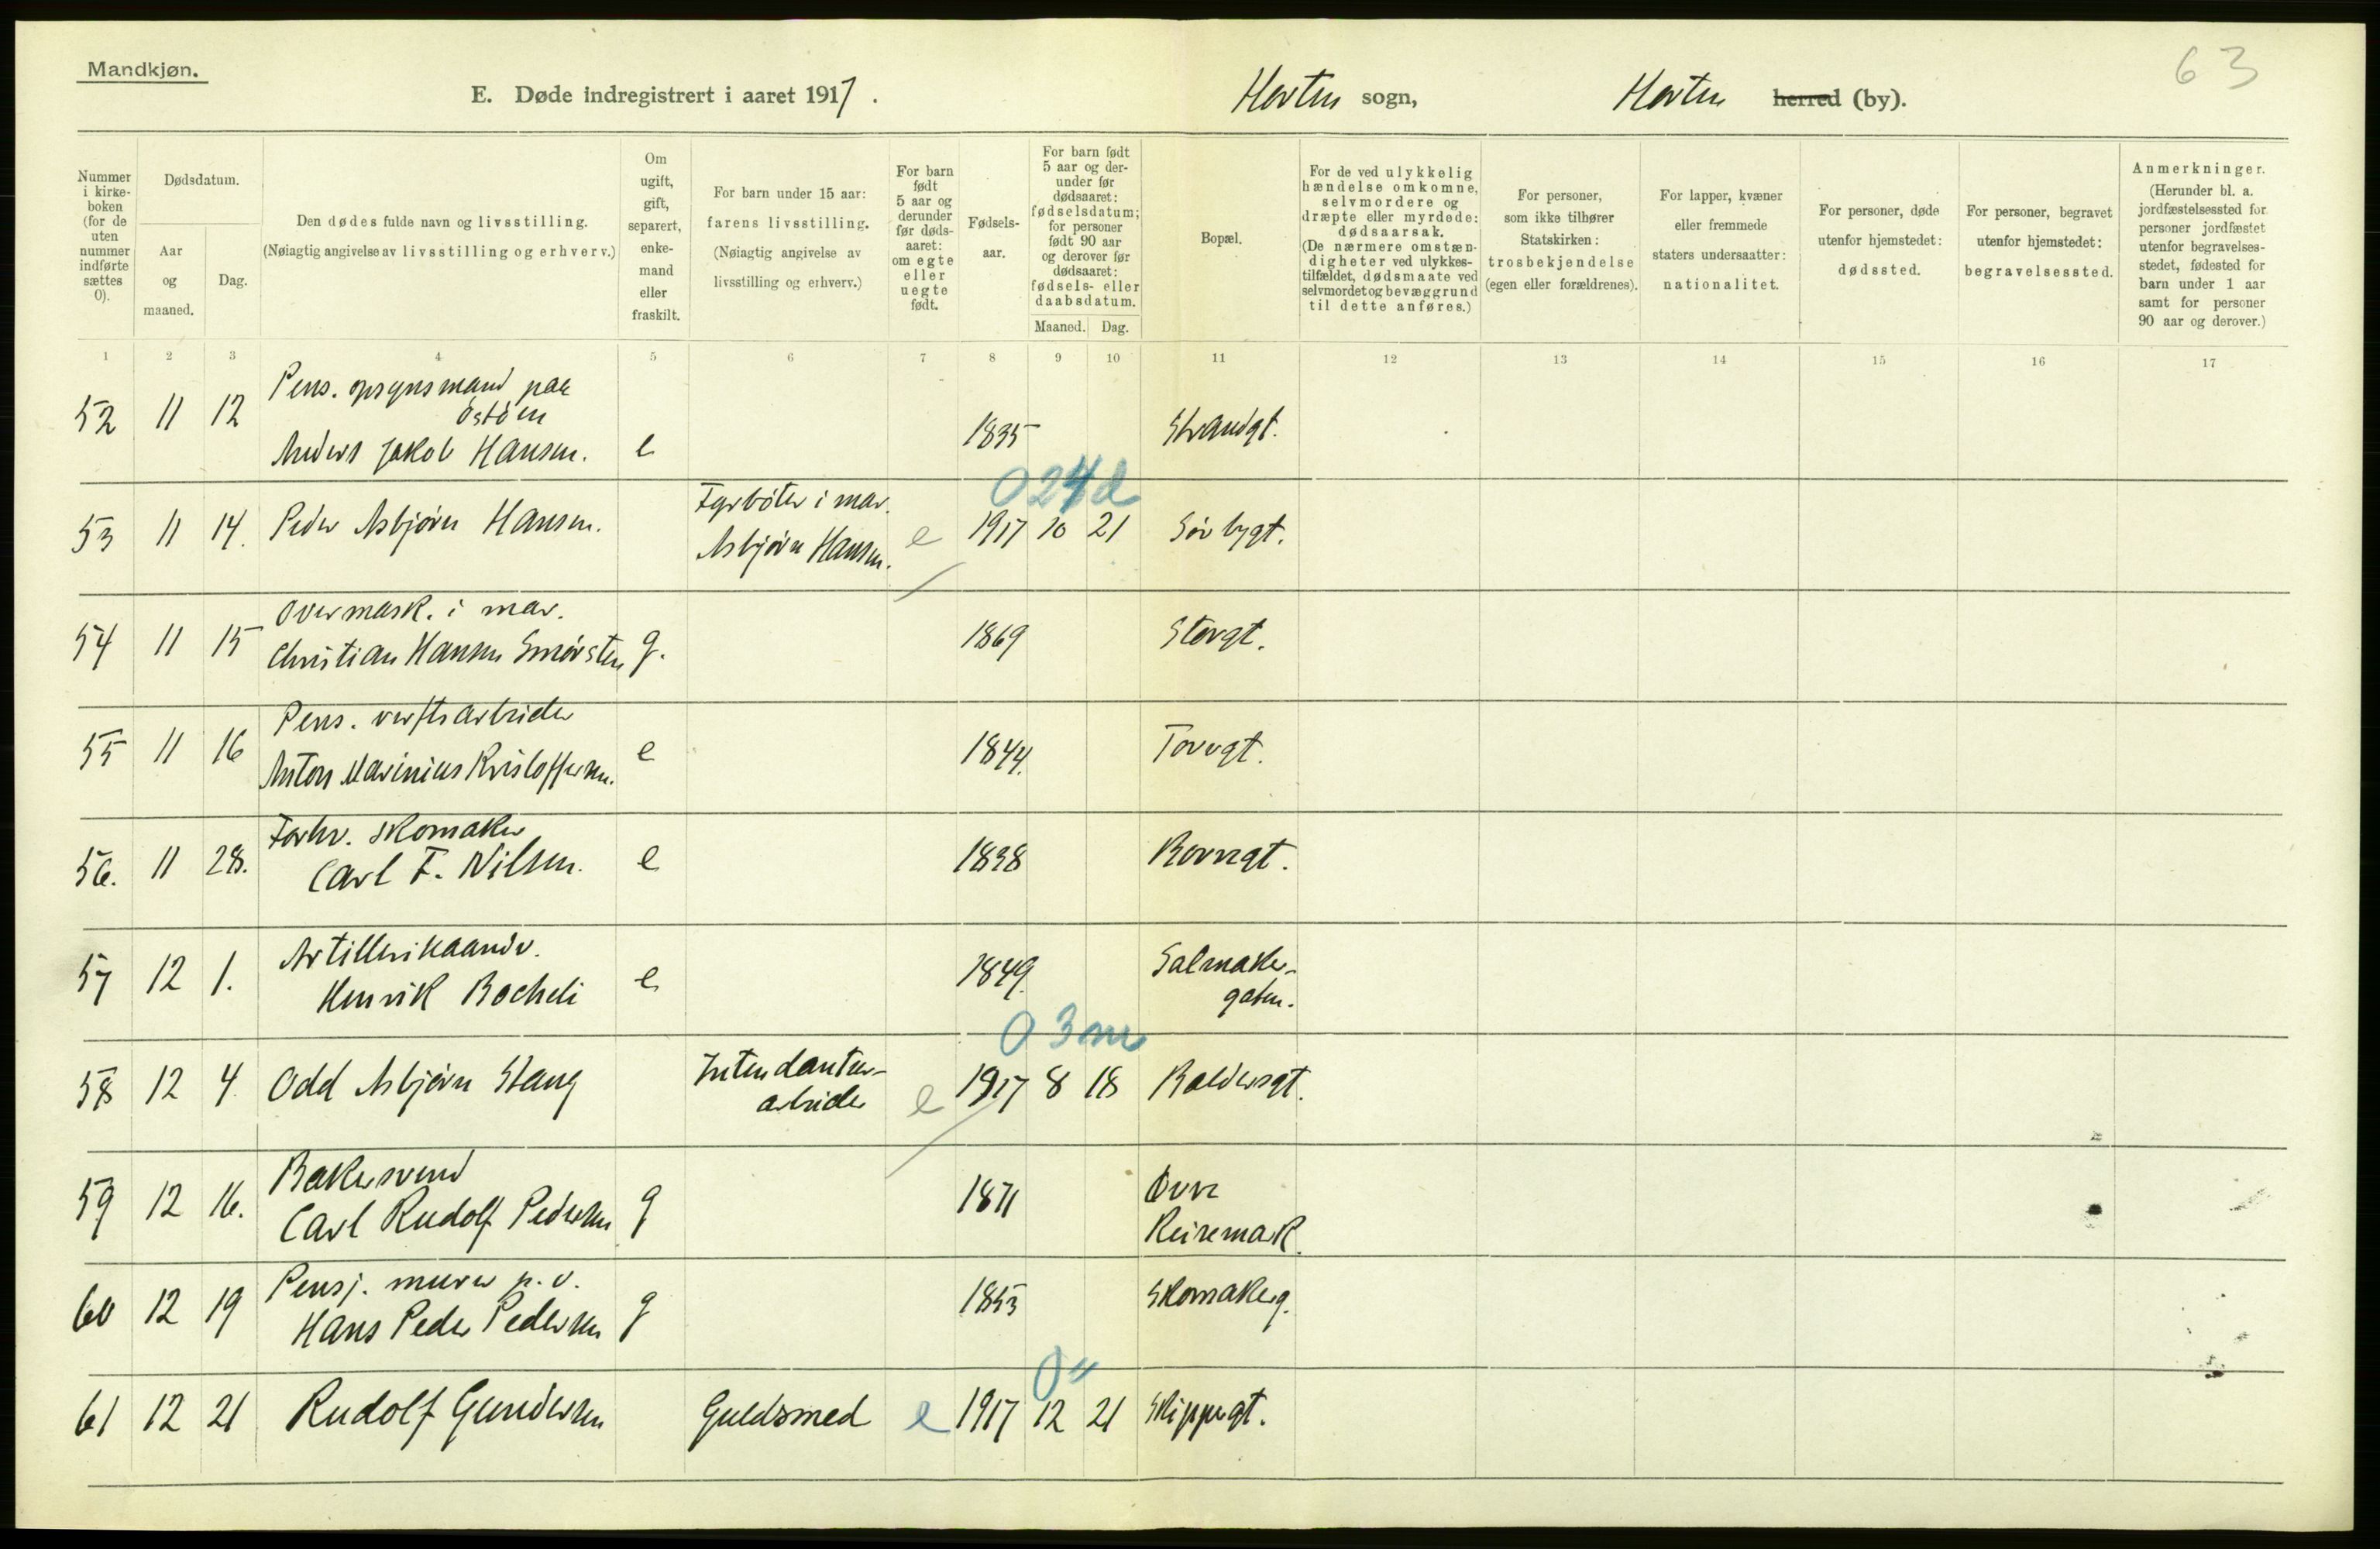 63
Mandkjøn.
E. Døde indregistrert i aaret 1917.
Horten sogn,
Horten herred (by).
Nummer i kirke-boken (for de uten nummer indførte sættes 0).
Dødsdatum.
Aar og maaned.
Dag.
Den dødes fulde navn og livsstilling.
(Nøiagtig angivelse av livsstilling og erhverv.)
Om ugift, gift, separert, enke-mand eller fraskilt.
For barn under 15 aar:
farens livsstilling.
(Nøiagtig angivelse av livsstilling og erhverv.)
For barn født 5 aar og derunder før døds-aaret: om egte eller uegte født.
Fødsels-aar.
For barn født 5 aar og der-under før dødsaaret: fødselsdatum; for personer født 90 aar og derover før dødsaaret: fødsels- eller daabsdatum.
Maaned. Dag.
Bopæl.
For de ved ulykkelig hændelse omkomne, selvmordere og dræpte eller myrdede: dødsaarsak.
(De nærmere omstæn-digheter ved ulykkes-tilfældet, dødsmaate ved selvmordet og bevæggrund til dette anføres.)
For personer, som ikke tilhører Statskirken: trosbekjendelse (egen eller forældrenes).
For lapper, kvæner eller fremmede staters undersaatter: nationalitet.
For personer, døde utenfor hjemstedet: dødssted.
For personer, begravet utenfor hjemstedet: begravelsessted.
Anmerkninger.
(Herunder bl. a. jordfæstelsessted for personer jordfæstet utenfor begravelses-stedet, fødested for barn under 1 aar samt for personer 90 aar og derover.)
1 2 3 4 5 6 7 8 9 10 11 12 13 14 15 16 17
Pens. opsynsmand paa
Østøen
52 11 12 Anders Jakob Hansen. e 1835 Strandgt.
0 24 d
Fyrbøter i mar.
53 11 14. Peder Asbjørn Hansen. Asbjørn Hansen. e 1917 10 21 Sørbygt.
Overmask. i mar.
54 11 15 Christian Hansen Smørsten g. 1869 Storgt.
Pens. verftsarbeider
55 11 16 Anton Marinius Kristoffersen. e 1844. Torvgt.
Forhv. skomaker
56. 11 28. Carl F. Nilsen. e 1838
Artillerihaandv.
57 12 1. Henrik Bocheli e 1849. Salmaker-
gaten.
0 3 m
Intendantur-
58 12 4 Odd Asbjørn Stang arbeider e 1917 8 18 Baldersgt.
Bakersvend
59 12 16. Carl Rudolf Pedersen g 1871 Øvre
Keisemark.
Pensj. murer p. v.
60 12 19 Hans Peder Pedersen g 1853 Skomakerg.
0
61 12 21 Rudolf Gundersen Guldsmed e 1917 12 21 Skippergt.